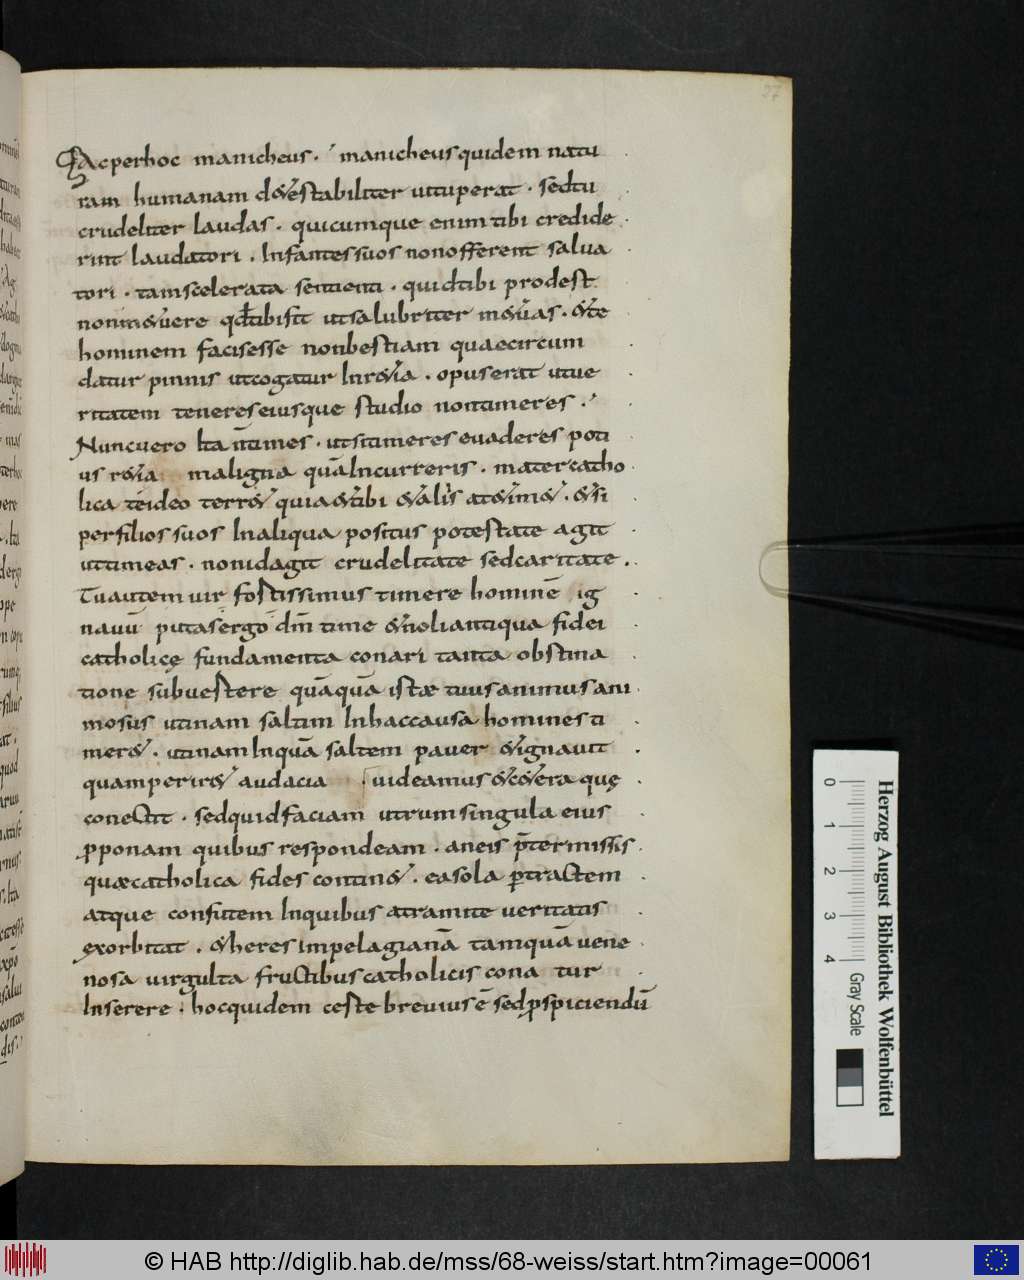 27
Ac per hoc manicheus. manicheus quidem natu
ram humanam d&estabiliter uituperat. sed tu
crudeliter laudas. quicumque enim tibi credide
rint laudatori. Infantes suos non offerent salua
tori. tam scelerata sentienti. quid tibi prodest
non in&uere qđ tibi sit ut salubriter m&uas. & te
hominem facis esse non bestiam quae circum
datur pinnis ut cogatur In r&ia. opus erat ut ue
ritatem teneres eiusque studio non timeres.
Nunc uero Ita n̄ times. ut si timeres euaderes poti
us r&ia maligna quā Incurreris. mater catho
lica te Ideo terr& quia & tibi & aliis at& im&. & si
per filios suos In aliqua positus potestate agit
ut timeas. non id agit crudelitate sed caritate.
Tu autem uir fortissimus timere hominē ig
nauū putas ergo dm̄ time & noli antiqua fidei
catholicę fundamenta conari tanta obstina
tione subuertere quāquā iste tuus animus ani
mosus utinam saltim In hac causa homines ti
mer&. utinam Inquā saltem pauer& ignauit
quam perir& audacia uideamus & c&era quę
conectit. sed quid faciam utrum singula eius
proponam quibus respondeam. an eis p̄termissis.
quæ catholica fides contin&. ea sola pertractem
atque confutem In quibus a tramite ueritatis
exorbitat. & heresim pelagianā tamquā uene
nosa uirgulta fructibus catholicis cona tur
Inserere. hoc quidem certe breuius ē sed prospiciendū
0 1 2 3 4
Gray Scale
Herzog August Bibliothek Wolfenbüttel
© HAB http://diglib.hab.de/mss/68-weiss/start.htm?image=00061